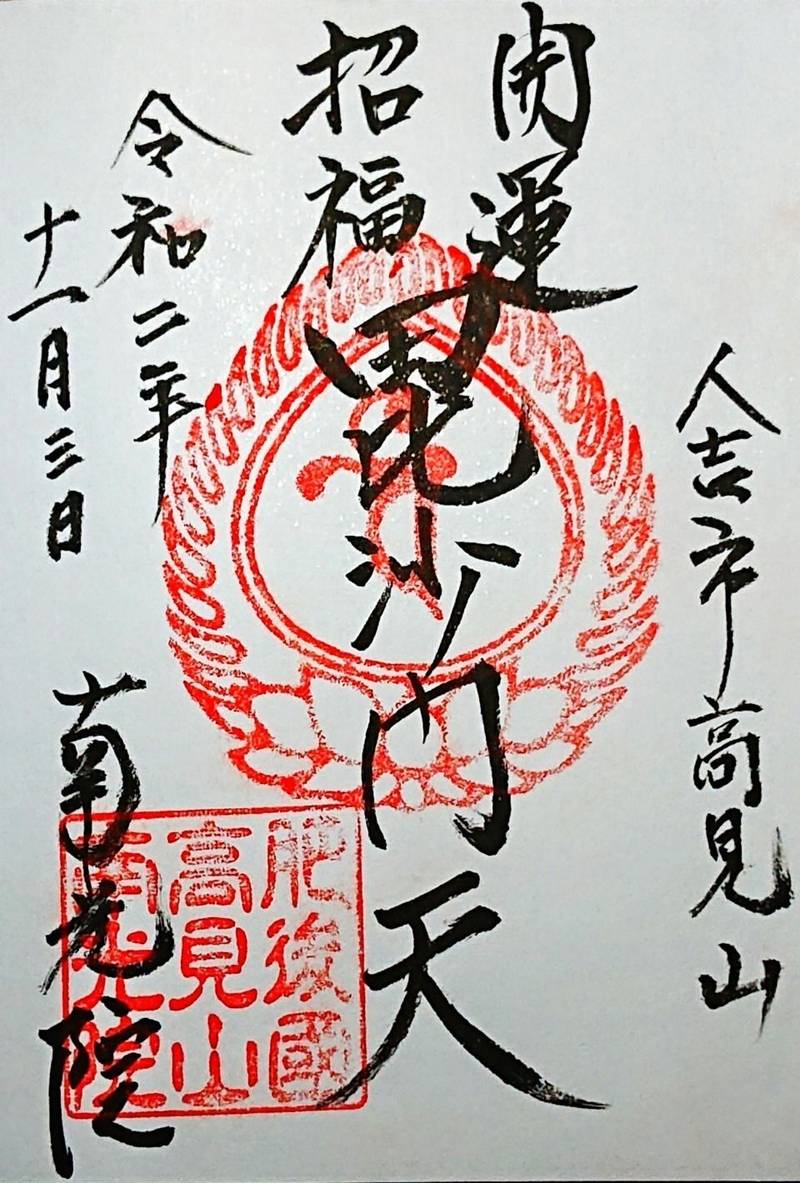 人吉市高見山
開運
招福
毘沙門天
令和二年
十一月三日
南光院
肥後國
高見山
南光院